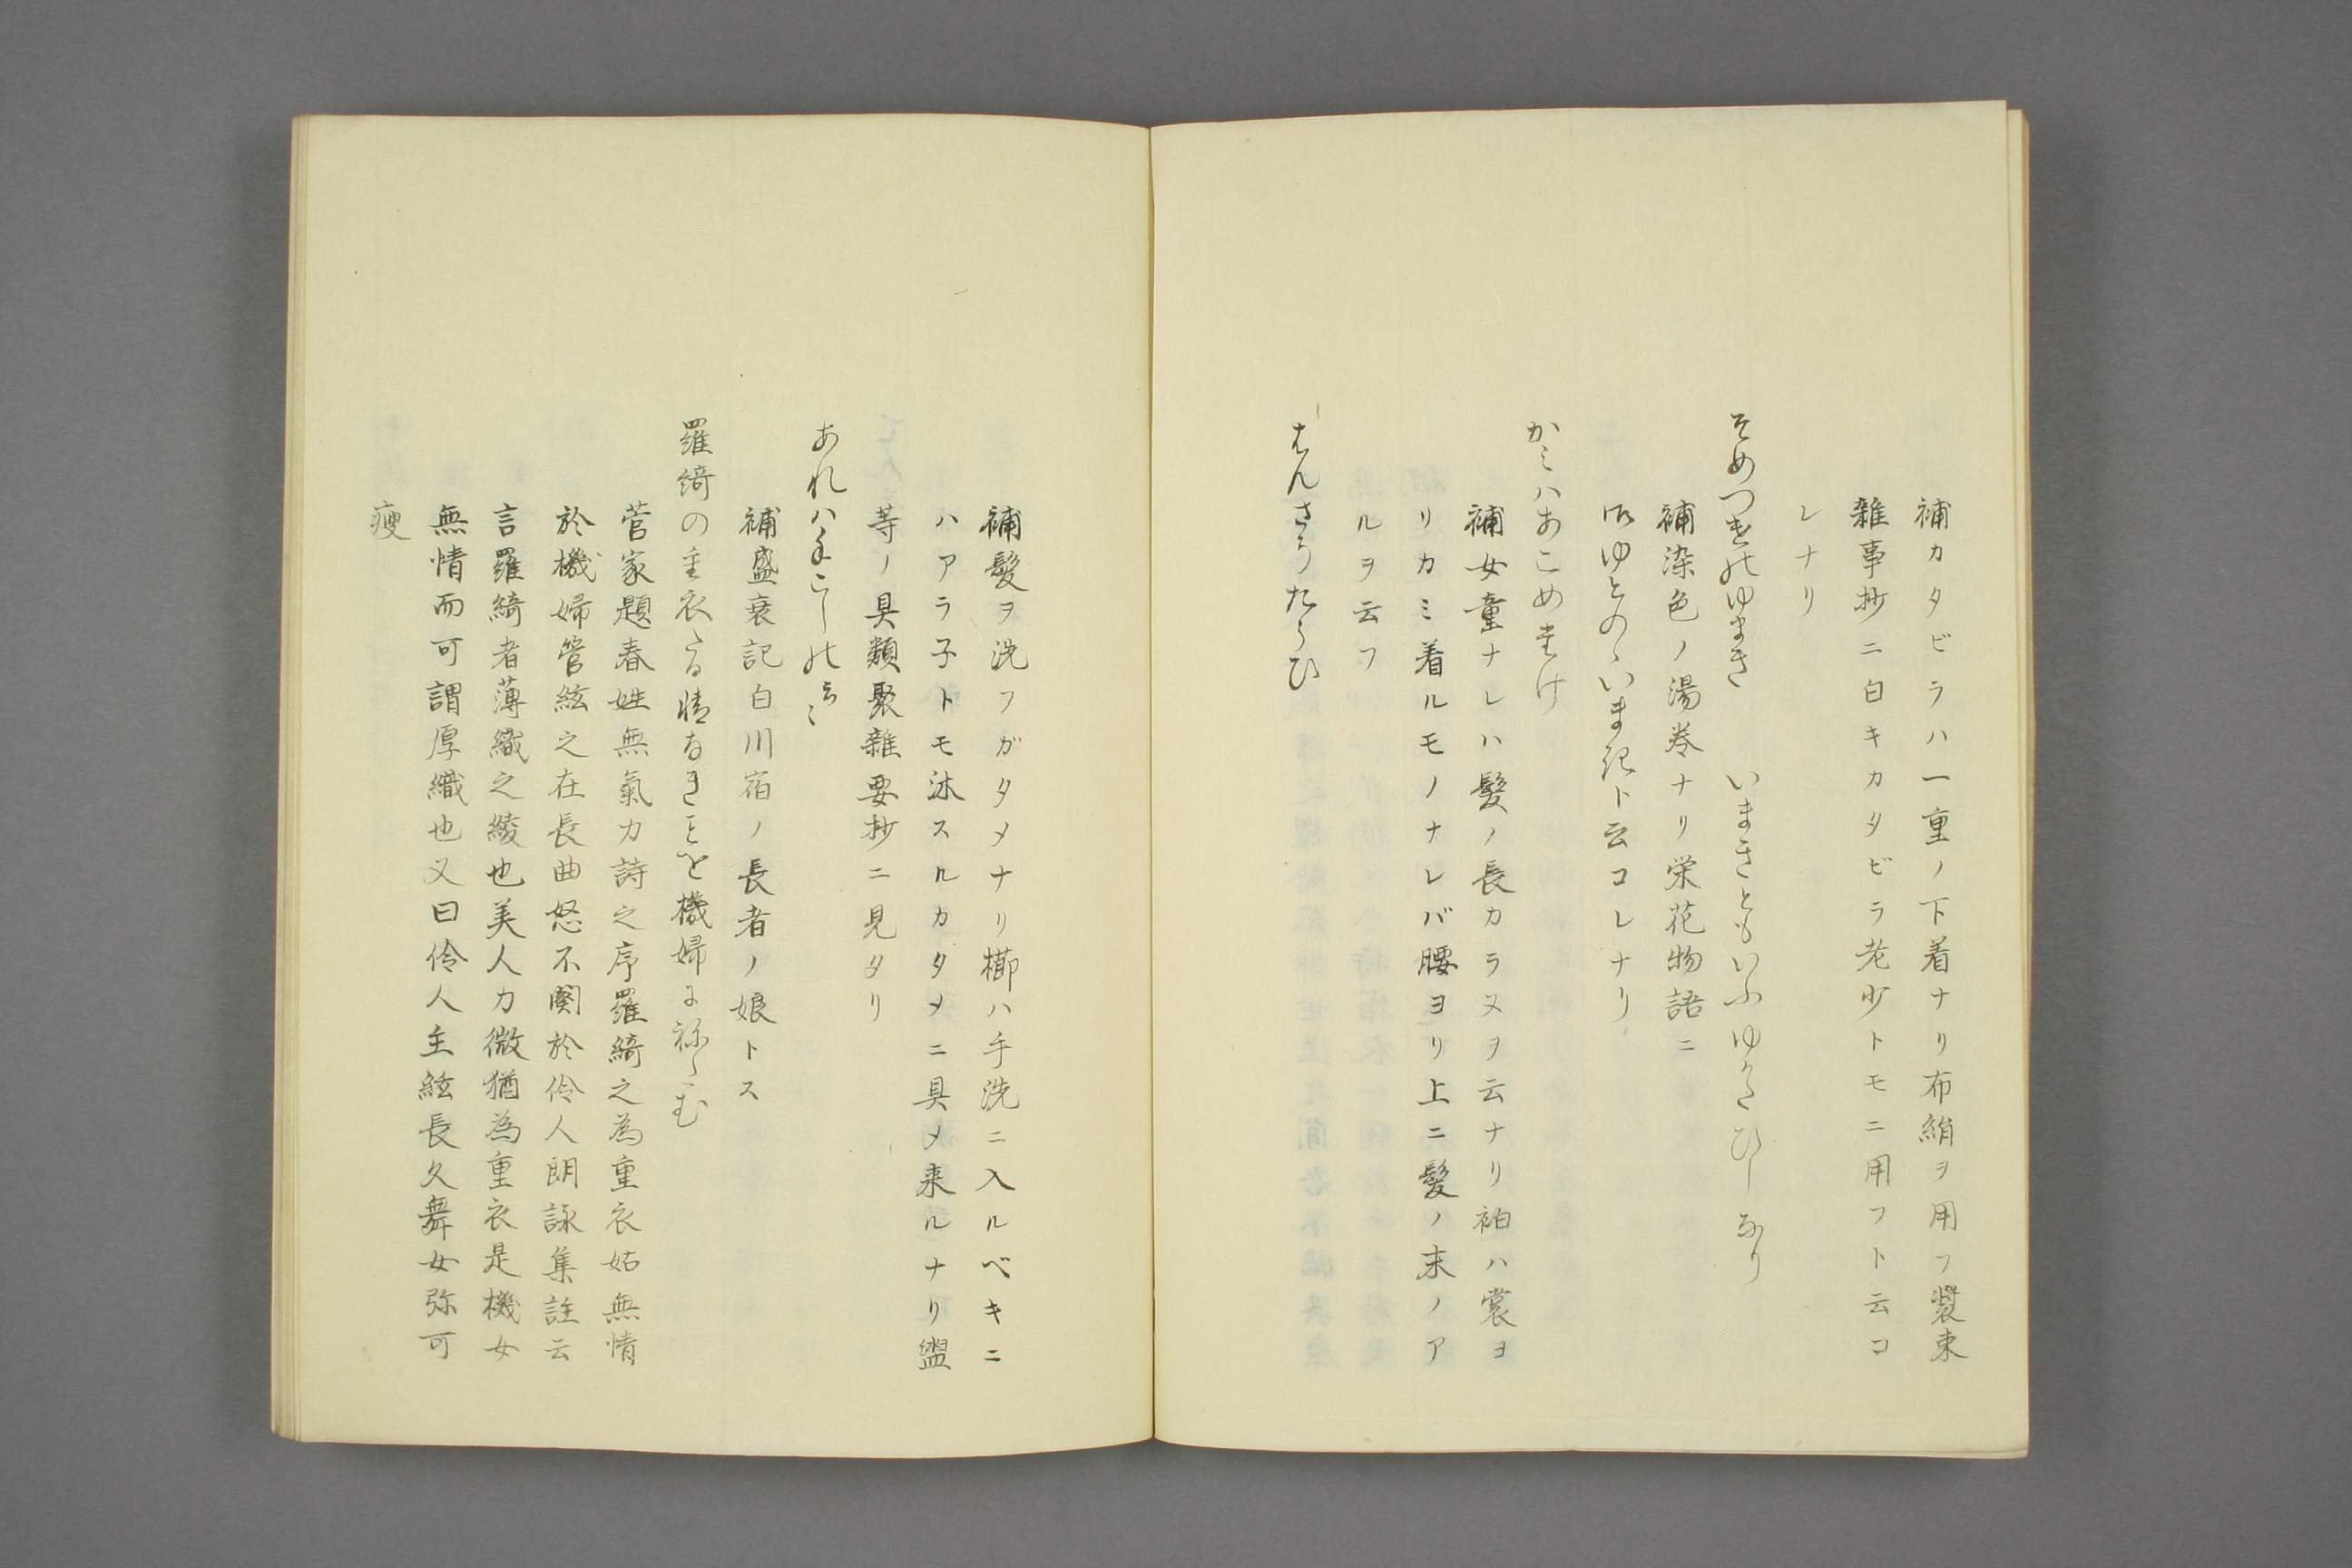 補カタビラハ一重ノ下着ナリ布絹ヲ用フ装束
雑事抄ニ白キカタビラ老少トモニ用フト云コ
レナリ
そめつけのゆまき　いまきともいふゆかたひしなり
補染色ノ湯巻ナリ栄花物語ニ
御ゆとのゝいまきト云コレナリ
かみハあこめたけ
補女童ナレハ髪ノ長カラヌヲ云ナリ袙ハ裳ヨ
リカミ着ルモノナレバ腰ヨリ上ニ髪ノ末ノア
ルヲ云フ
はんさうたらひ
補髪ヲ洗フガタメナリ櫛ハ手洗ニ入ルベキニ
ハアラ子トモ沐スルカタメニ具メ来ルナリ盥
等ノ具類聚雑要抄ニ見タリ
あれハ手こしの
補盛衰記白川宿ノ長者ノ娘トス
羅綺の重衣たる情なきことを機婦に
菅家題春娃無氣力詩之序羅綺之為重衣妬無情
於機婦管絃之在長曲怒不闋於伶人朗詠集註云
言羅綺者薄織之綾也美人力微猶為重衣是機女
無情而可謂厚織也又曰伶人主絃長久舞女弥可
痩